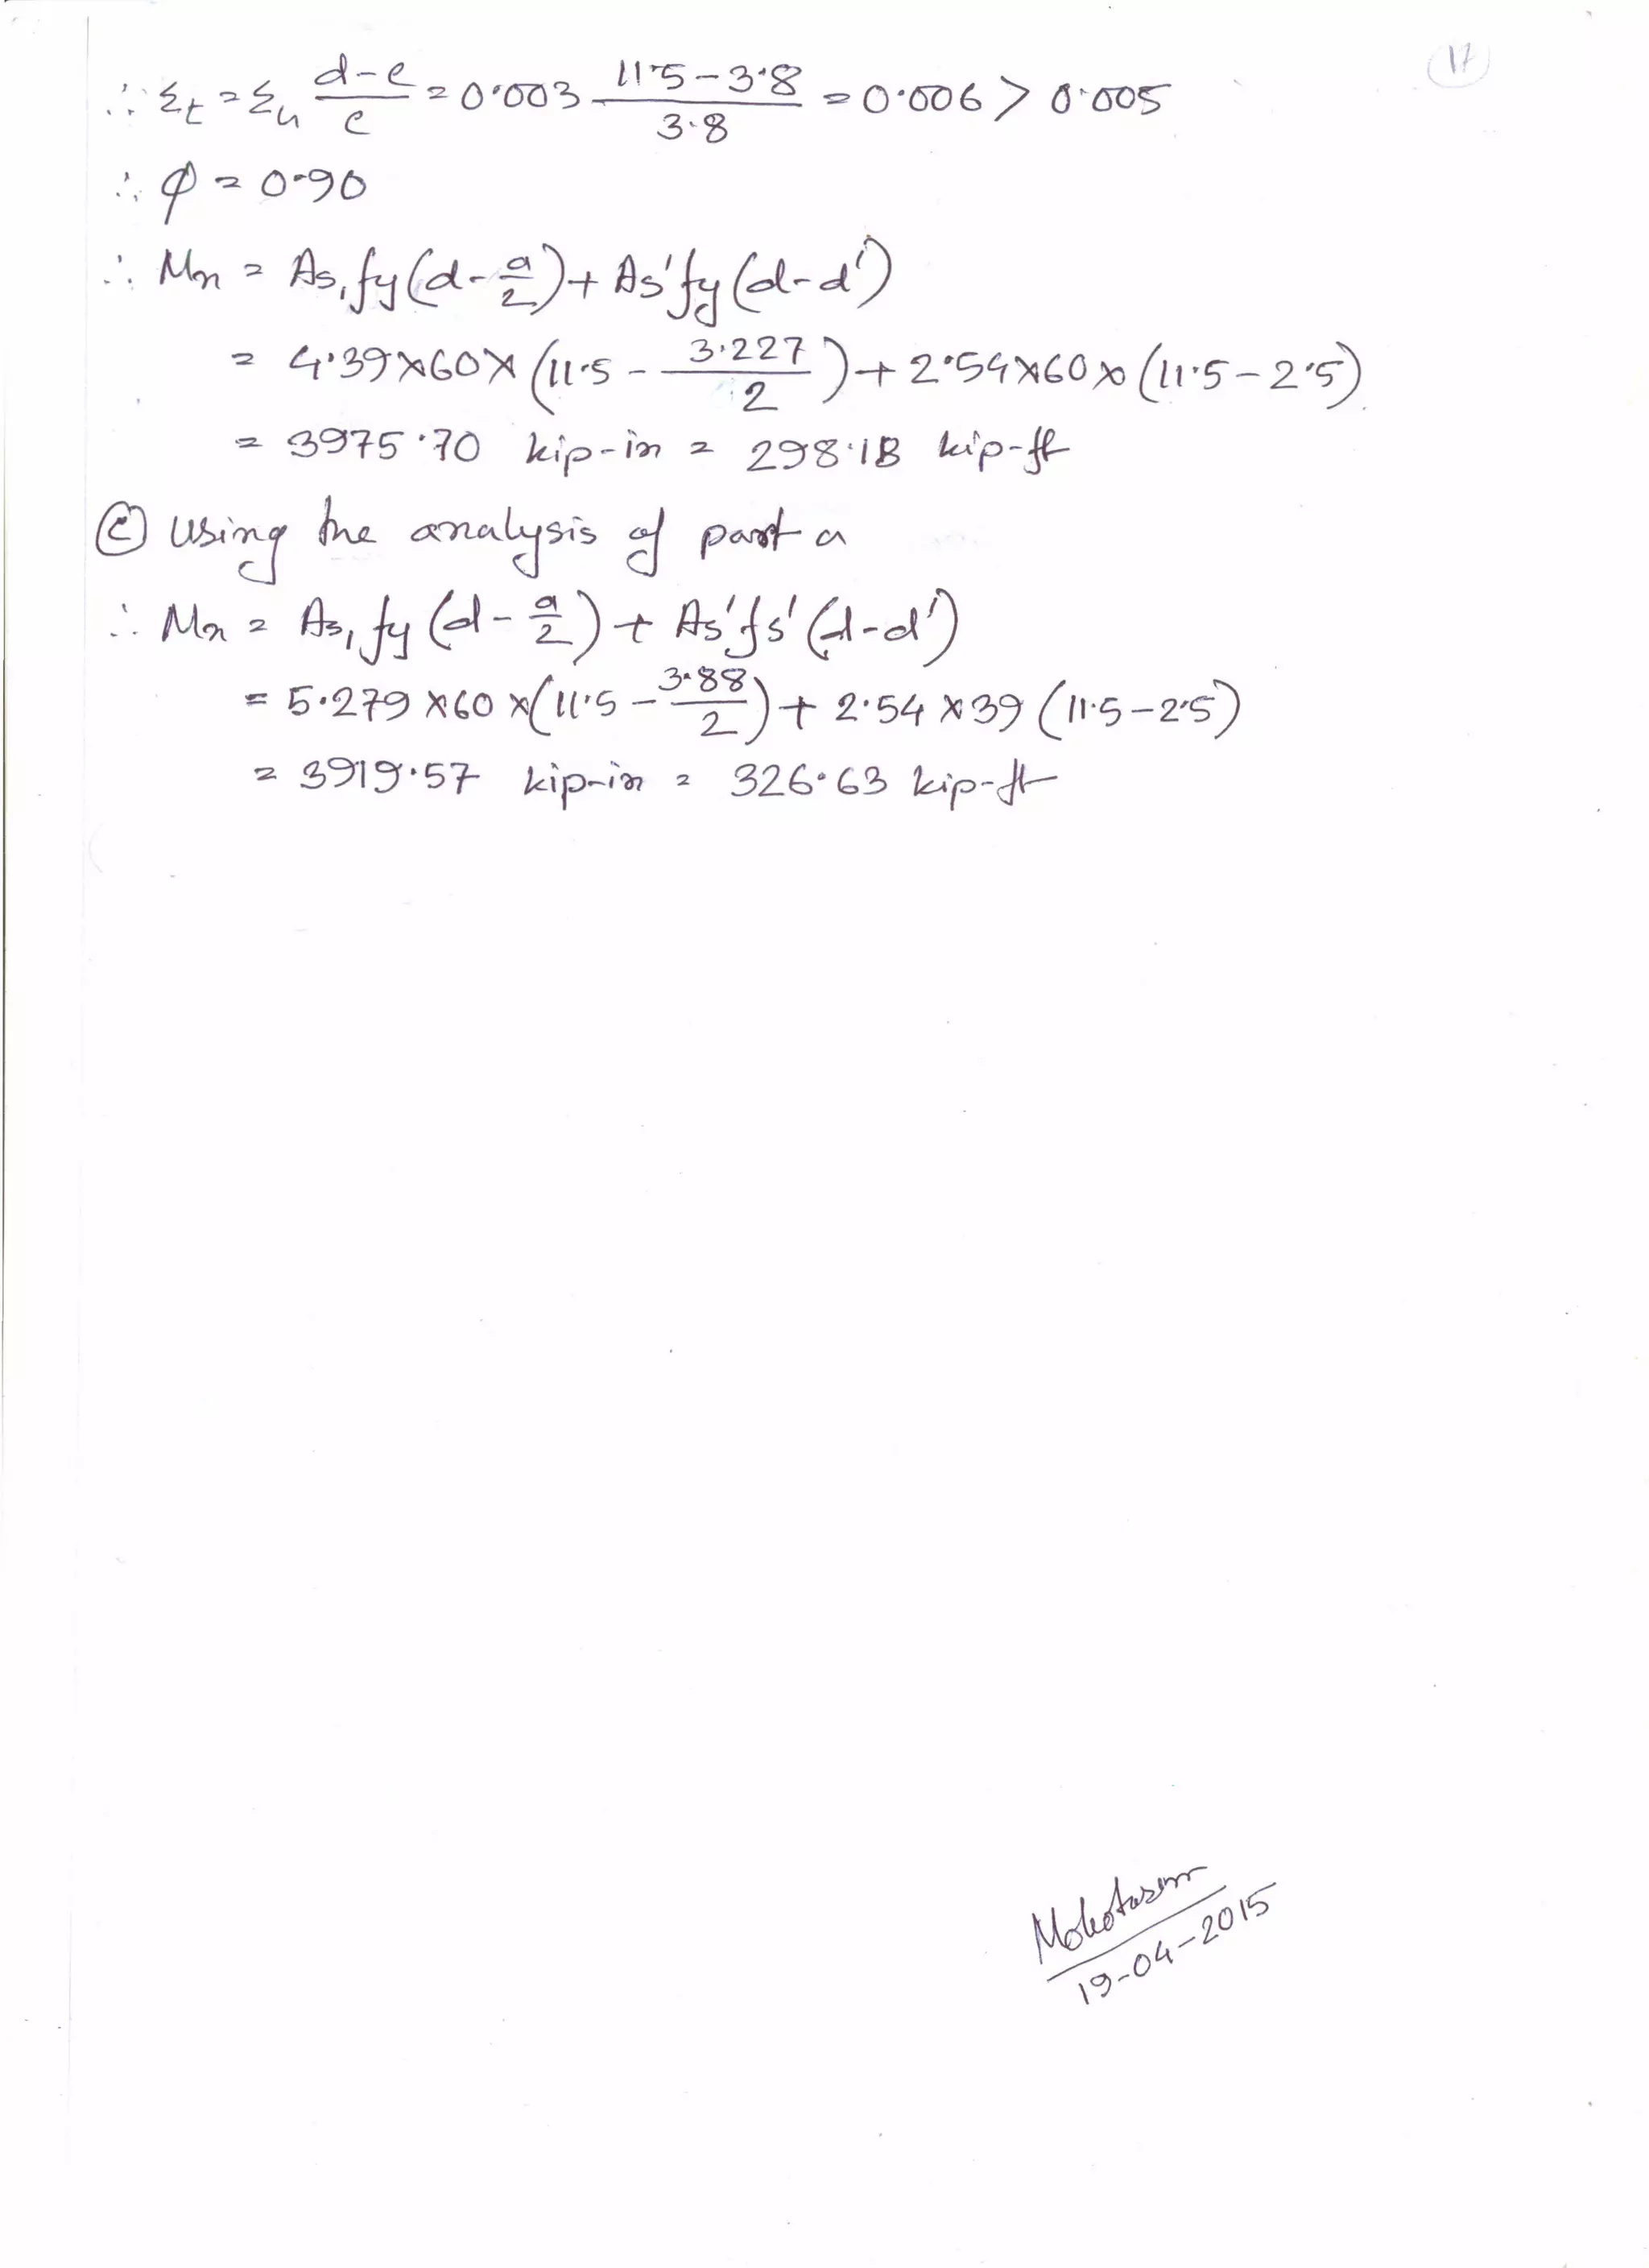 17
∴ Σt = Σu (d-c)/c = 0.003 (11.5-3.8)/3.8 = 0.006 > 0.005
∴ φ = 0.90
∴ Mn = As₁fy(d-a/2)+As'fy(d-d')
= 4.39×60×(11.5-3.227/2)+2.54×60×(11.5-2.5)
= 3975.70 kip-in = 298.18 kip-ft
ⓒ Using the analysis of part a
∴ Mn = As₁fy(d-a/2)+As'fs'(d-d')
= 5.279×60×(11.5-3.88/2)+2.54×39(11.5-2.5)
= 3919.57 kip-in = 326.63 kip-ft
19-04-2015